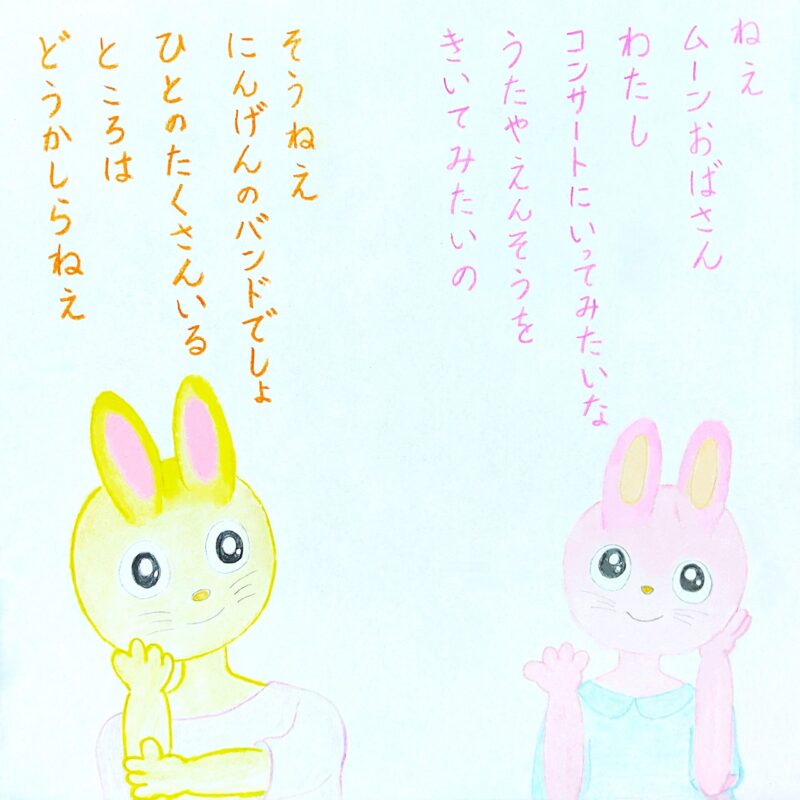 ねえ
ムーンおばさん
わたし
コンサートにいってみたいな
うたやえんそうを
きいてみたいの
そうねえ
にんげんのバンドでしょ
ひとのたくさんいる
ところは
どうかしらねえ